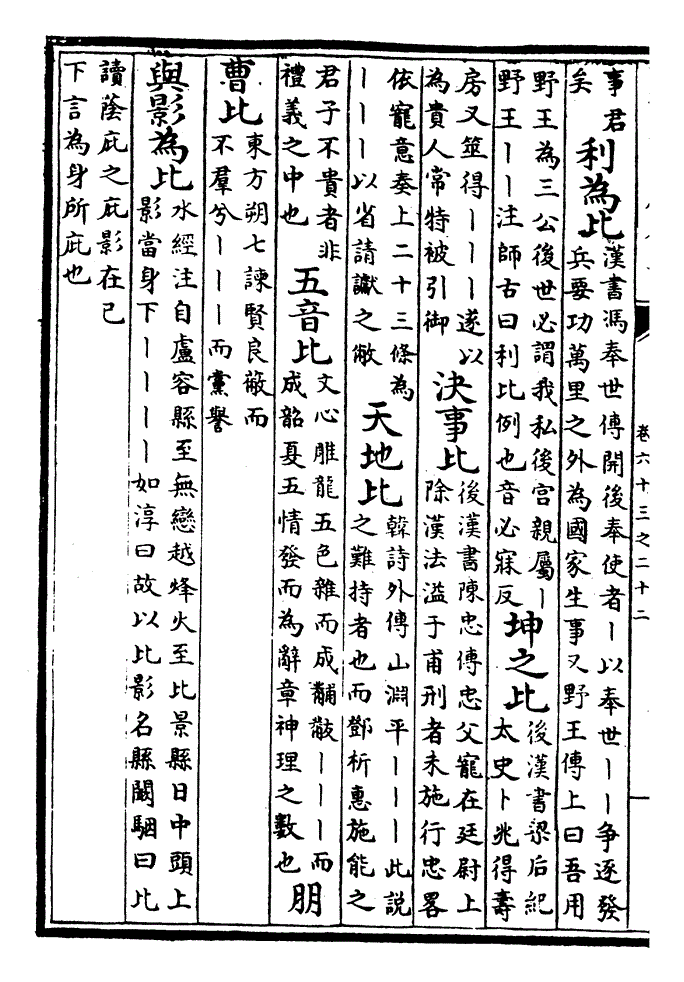 事君
矣
利為比
漢書馮奉世傳開後奉使者丨以奉世丨丨争逐發
兵要功萬里之外為國家生事又野王傳上曰吾用
野王為三公後世必謂我私後宫親屬丨
野王丨丨注師古曰利比例也音必寐反
坤之比
後漢書梁后紀
太史卜兆得壽
房又筮得丨丨丨遂以
為貴人常特被引御
決事比
後漢書陳忠傳忠父寵在廷尉上
除漢法溢于甫刑者未施行忠畧
依寵意奏上二十三條為
丨丨丨以省請讞之敝
天地比
韓詩外傳山淵平丨丨丨此説
之難持者也而鄧析惠施能之
君子不貴者非
禮義之中也
五音比
文心雕龍五色雜而成黼黻丨丨丨而
成韶夏五情發而為辭章神理之數也
朋
曹比
東方朔七諫賢良蔽而
不羣兮丨丨丨而黨譽
與影為比
水經注自盧容縣至無變越烽火至比景縣日中頭上
影當身下丨丨丨丨如淳曰故以比影名縣闞駰曰比
讀蔭庇之庇影在己
下言為身所庇也
卷六十三之二十二